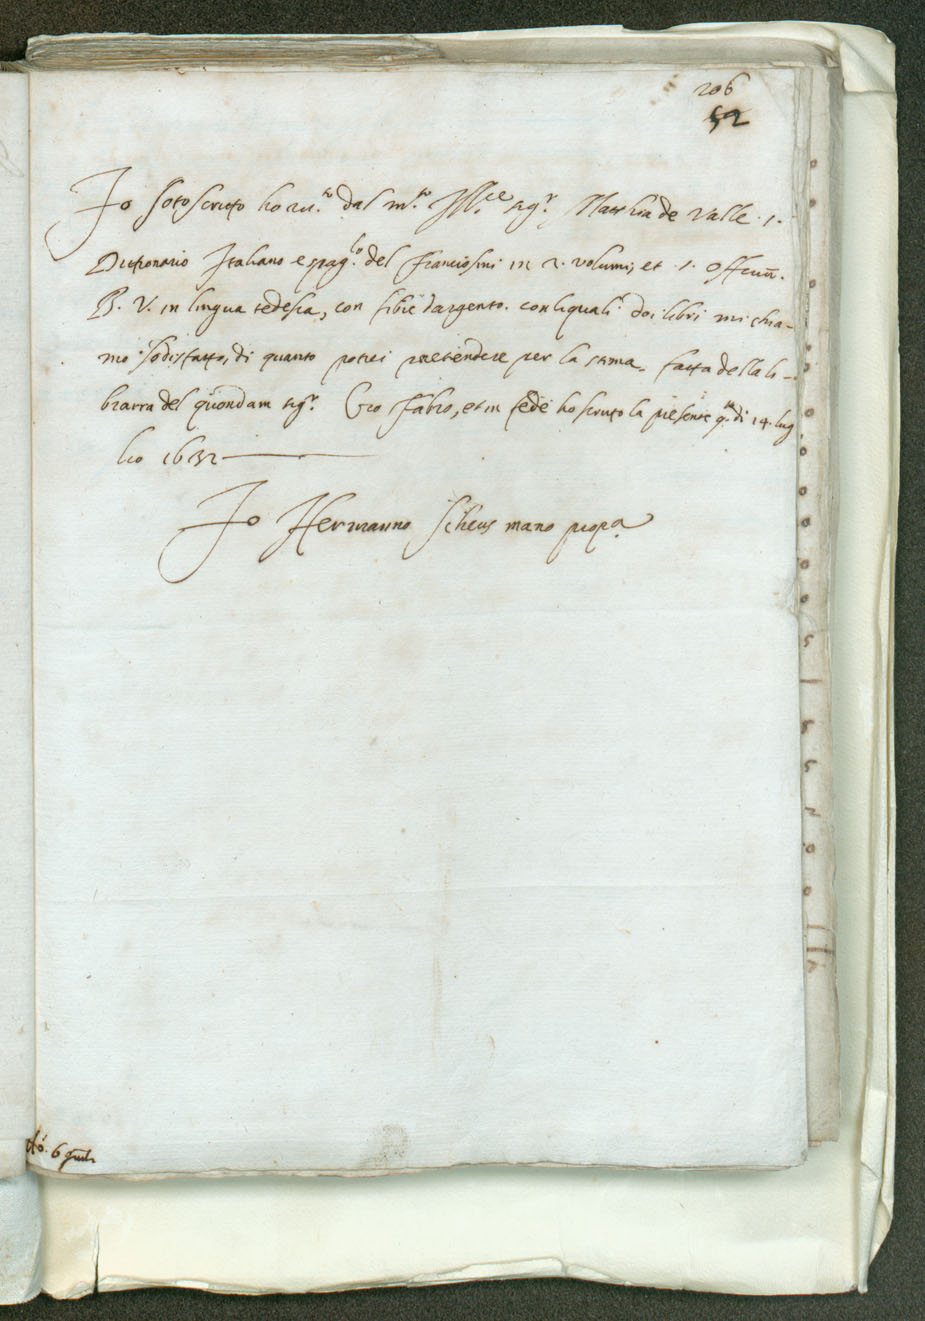 206
52
Io sotoscritto ho riu.to dal m.to Ill.ce sig.r Matthia de Valle .1.
Dictionario Italiano e spag.lo del franciosini in 2. volumi, et .1. officiu.
B. V. in lingua tedesca, con fibie d'argento. con liquali doi libri mi chia-
mo sodisfatto, di quanto potrei pretendere per la stima, fatta della li-
braria del quondam sig.r Gio Fabro, et in fede ho scritto la presente q.to di 14. lug
lio 1632
Io Hermanno Scheus mano prop.a